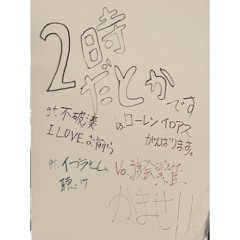 2時
だとか
です
Gt. 不破湊
I LOVE お前ら
Ba. ローレンイロアス
がんばります。
Dr. イブラヒム
聴け
Vo. 渡会雲雀
かませ!!